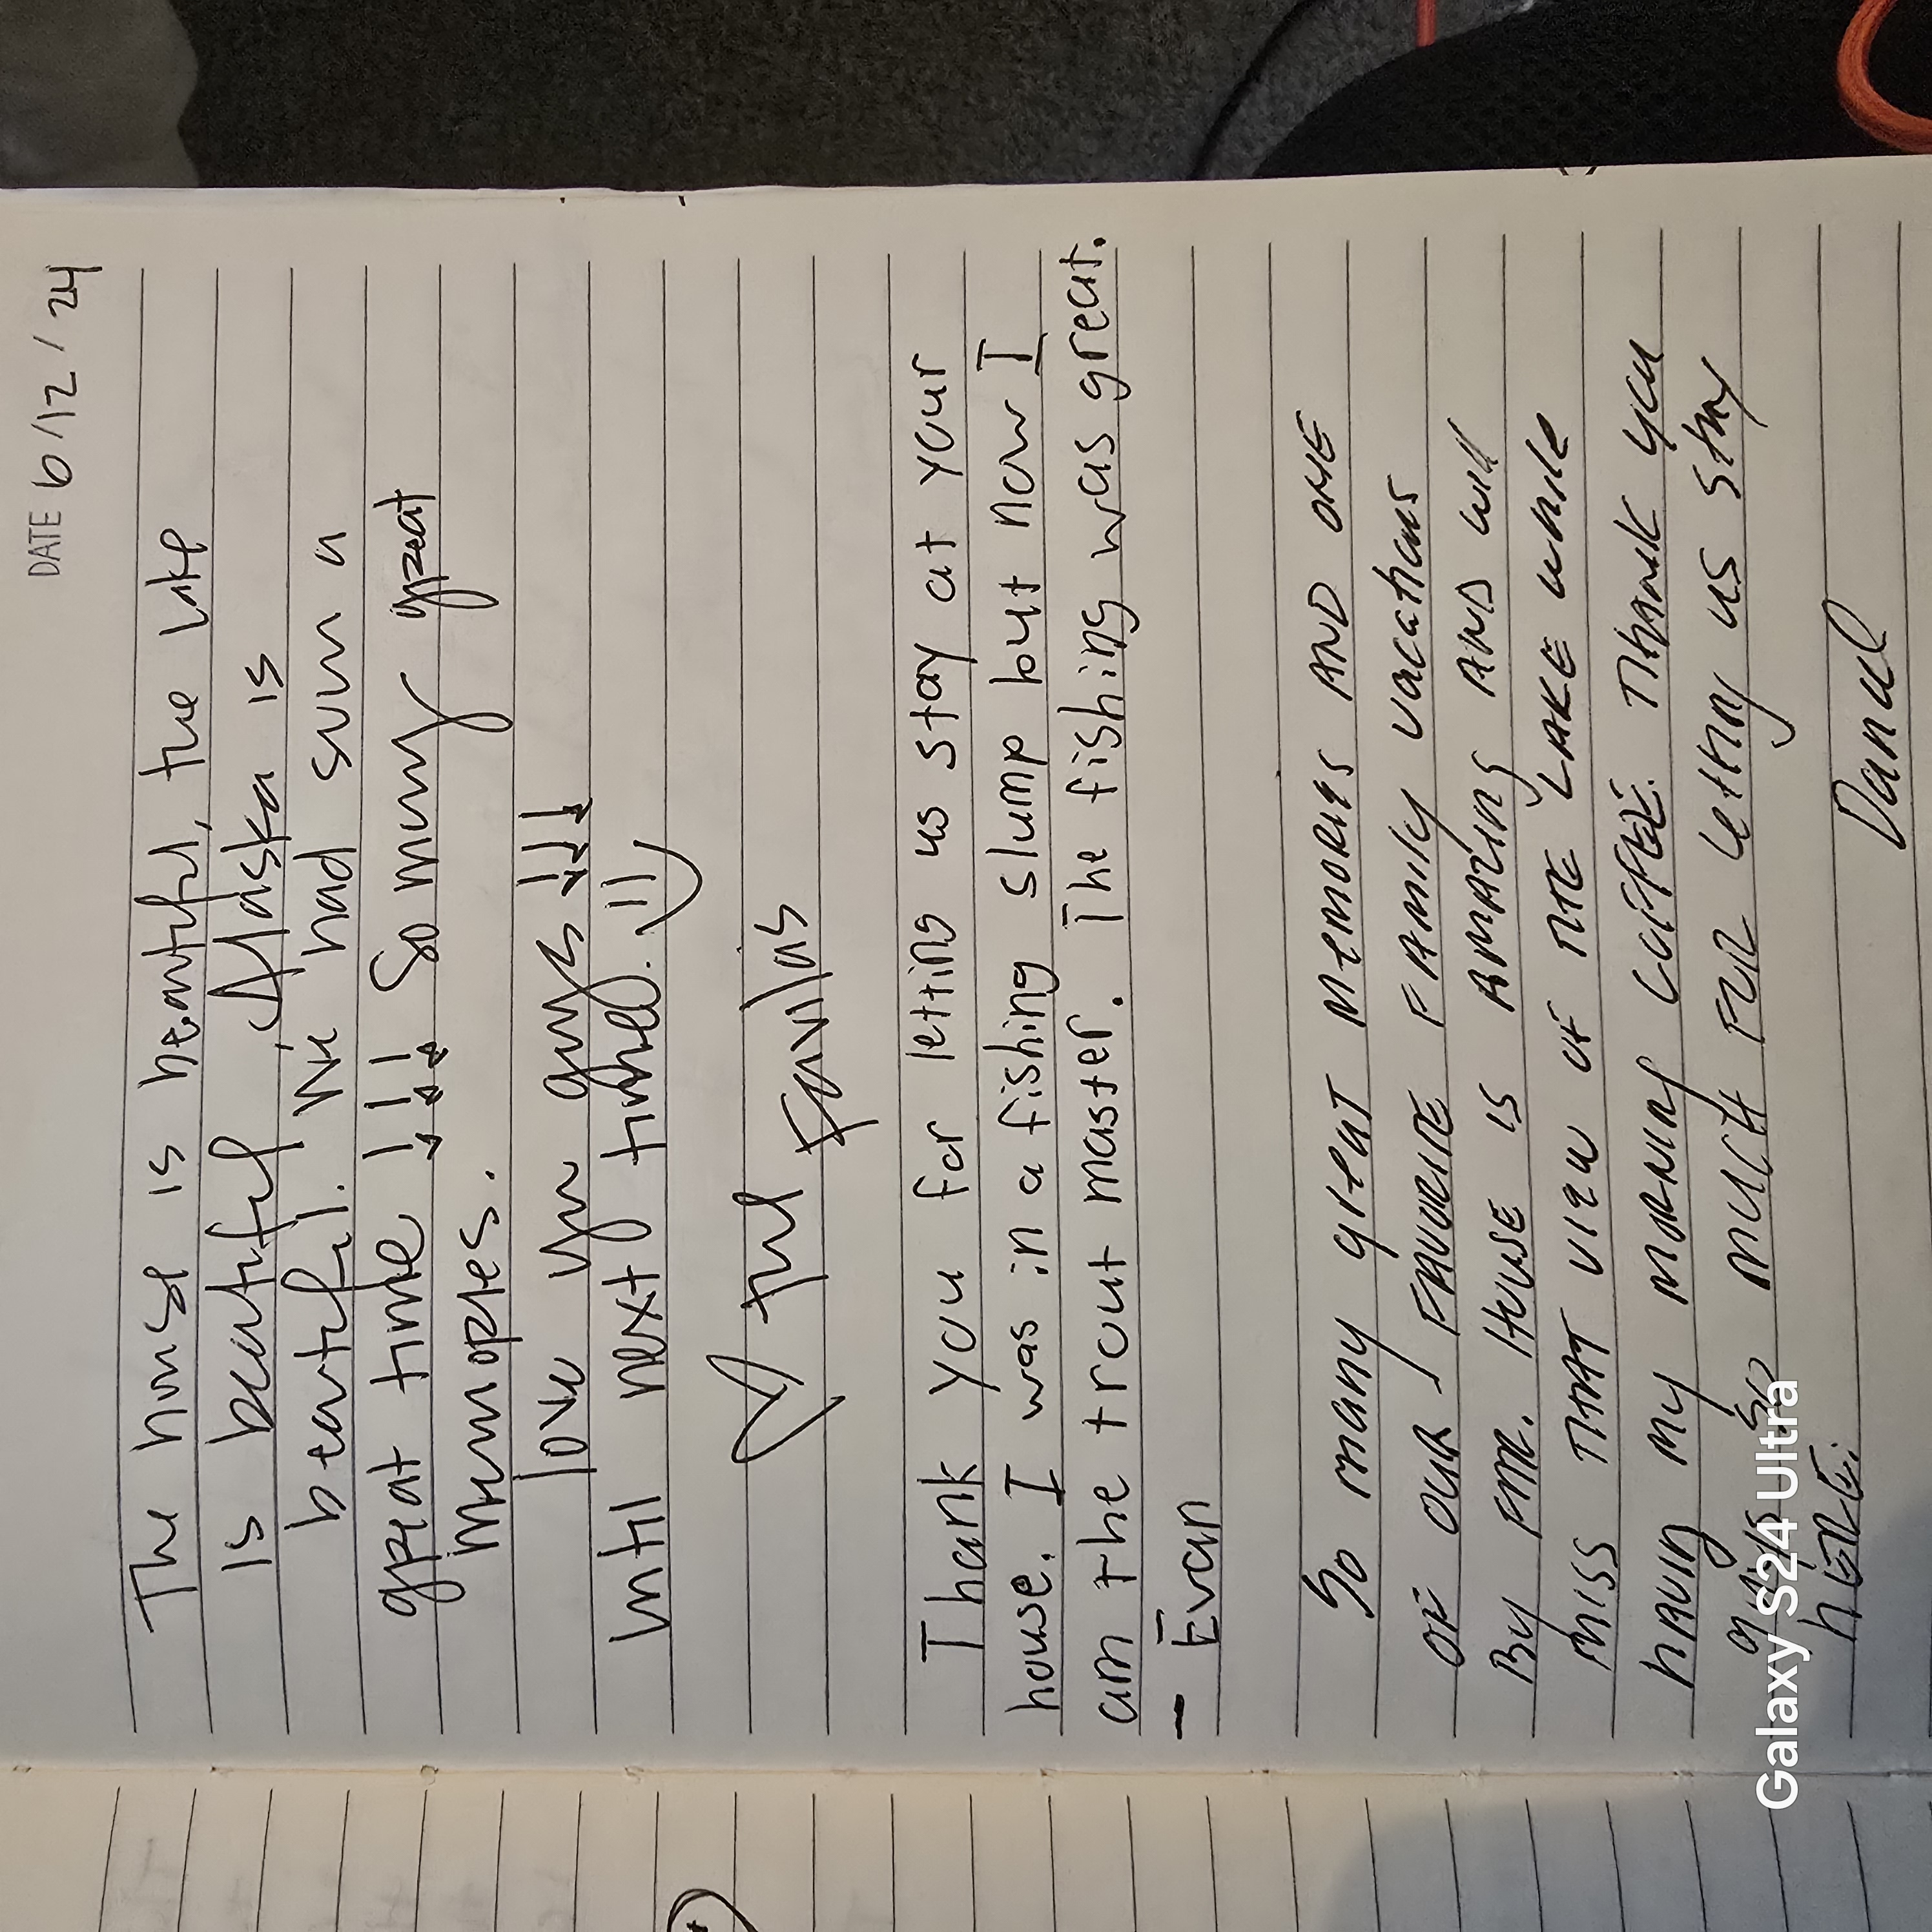 DATE 6/12/24
The house is beautiful, the lake
is beautiful, Alaska is
beautiful. We had such a
great time!!! So many great
memories.
love you guys!!!
until next time. :)
♡ The Favilas
Thank you for letting us stay at your
house. I was in a fishing slump but now I
am the trout master. The fishing was great.
- Evan
So many great memories AND ONE
OF OUR FAVORITE FAMILY vacations
By FAR. House is AMAZING AND will
miss THAT view OF THE LAKE while
having my morning coffee. Thank you
guys so much FOR letting us stay
HERE.
Daniel
Galaxy S24 Ultra